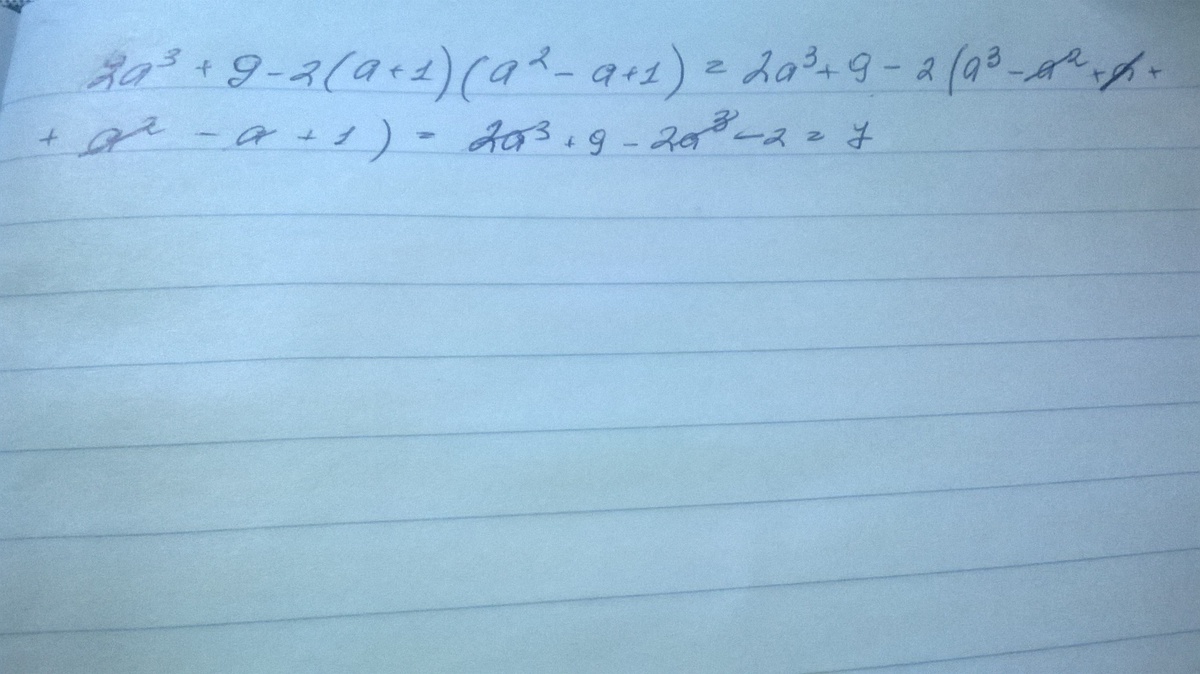 2a³ + 9 - 2(a+1)(a² - a+1) = 2a³ + 9 - 2(a³ - a² + a +
+ a² - a + 1) = 2a³ + 9 - 2a³ - 2 = 7